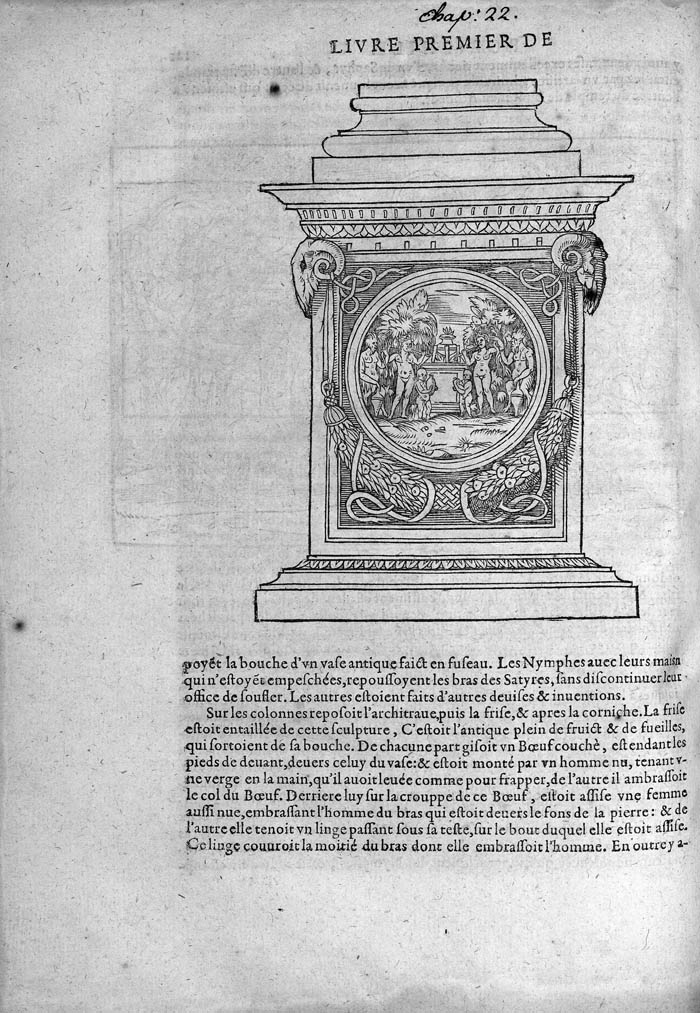 chap: 22.
LIVRE PREMIER DE
poyẽt la bouche d'vn vase antique faict en fuseau. Les Nymphes auec leurs maisn
qui n'estoyẽt empeschées, repoussoyent les bras des Satyres, sans discontinuer leur
office de soufler. Les autres estoient faits d'autres deuises & inuentions.
Sur les colonnes reposoit l'architraue, puis la frise, & apres la corniche. La frise
estoit entaillée de cette sculpture, C'estoit l'antique plein de fruict & de fueilles,
qui sortoient de sa bouche. De chacune part gisoit vn Bœuf couchè, estendant les
pieds de deuant, deuers celuy du vase: & estoit monté par vn homme nu, tenant v-
ne verge en la main, qu'il auoit leuée comme pour frapper, de l'autre il ambrassoit
le col du Bœuf. Derriere luy sur la crouppe de ce Bœuf, estoit assise vne femme
aussi nue, embrassant l'homme du bras qui estoit deuers le fons de la pierre: & de
l'autre elle tenoit vn linge passant sous sa teste, sur le bout duquel elle estoit assise.
Ce linge couuroit la moitié du bras dont elle embrassoit l'homme. En outre y a-